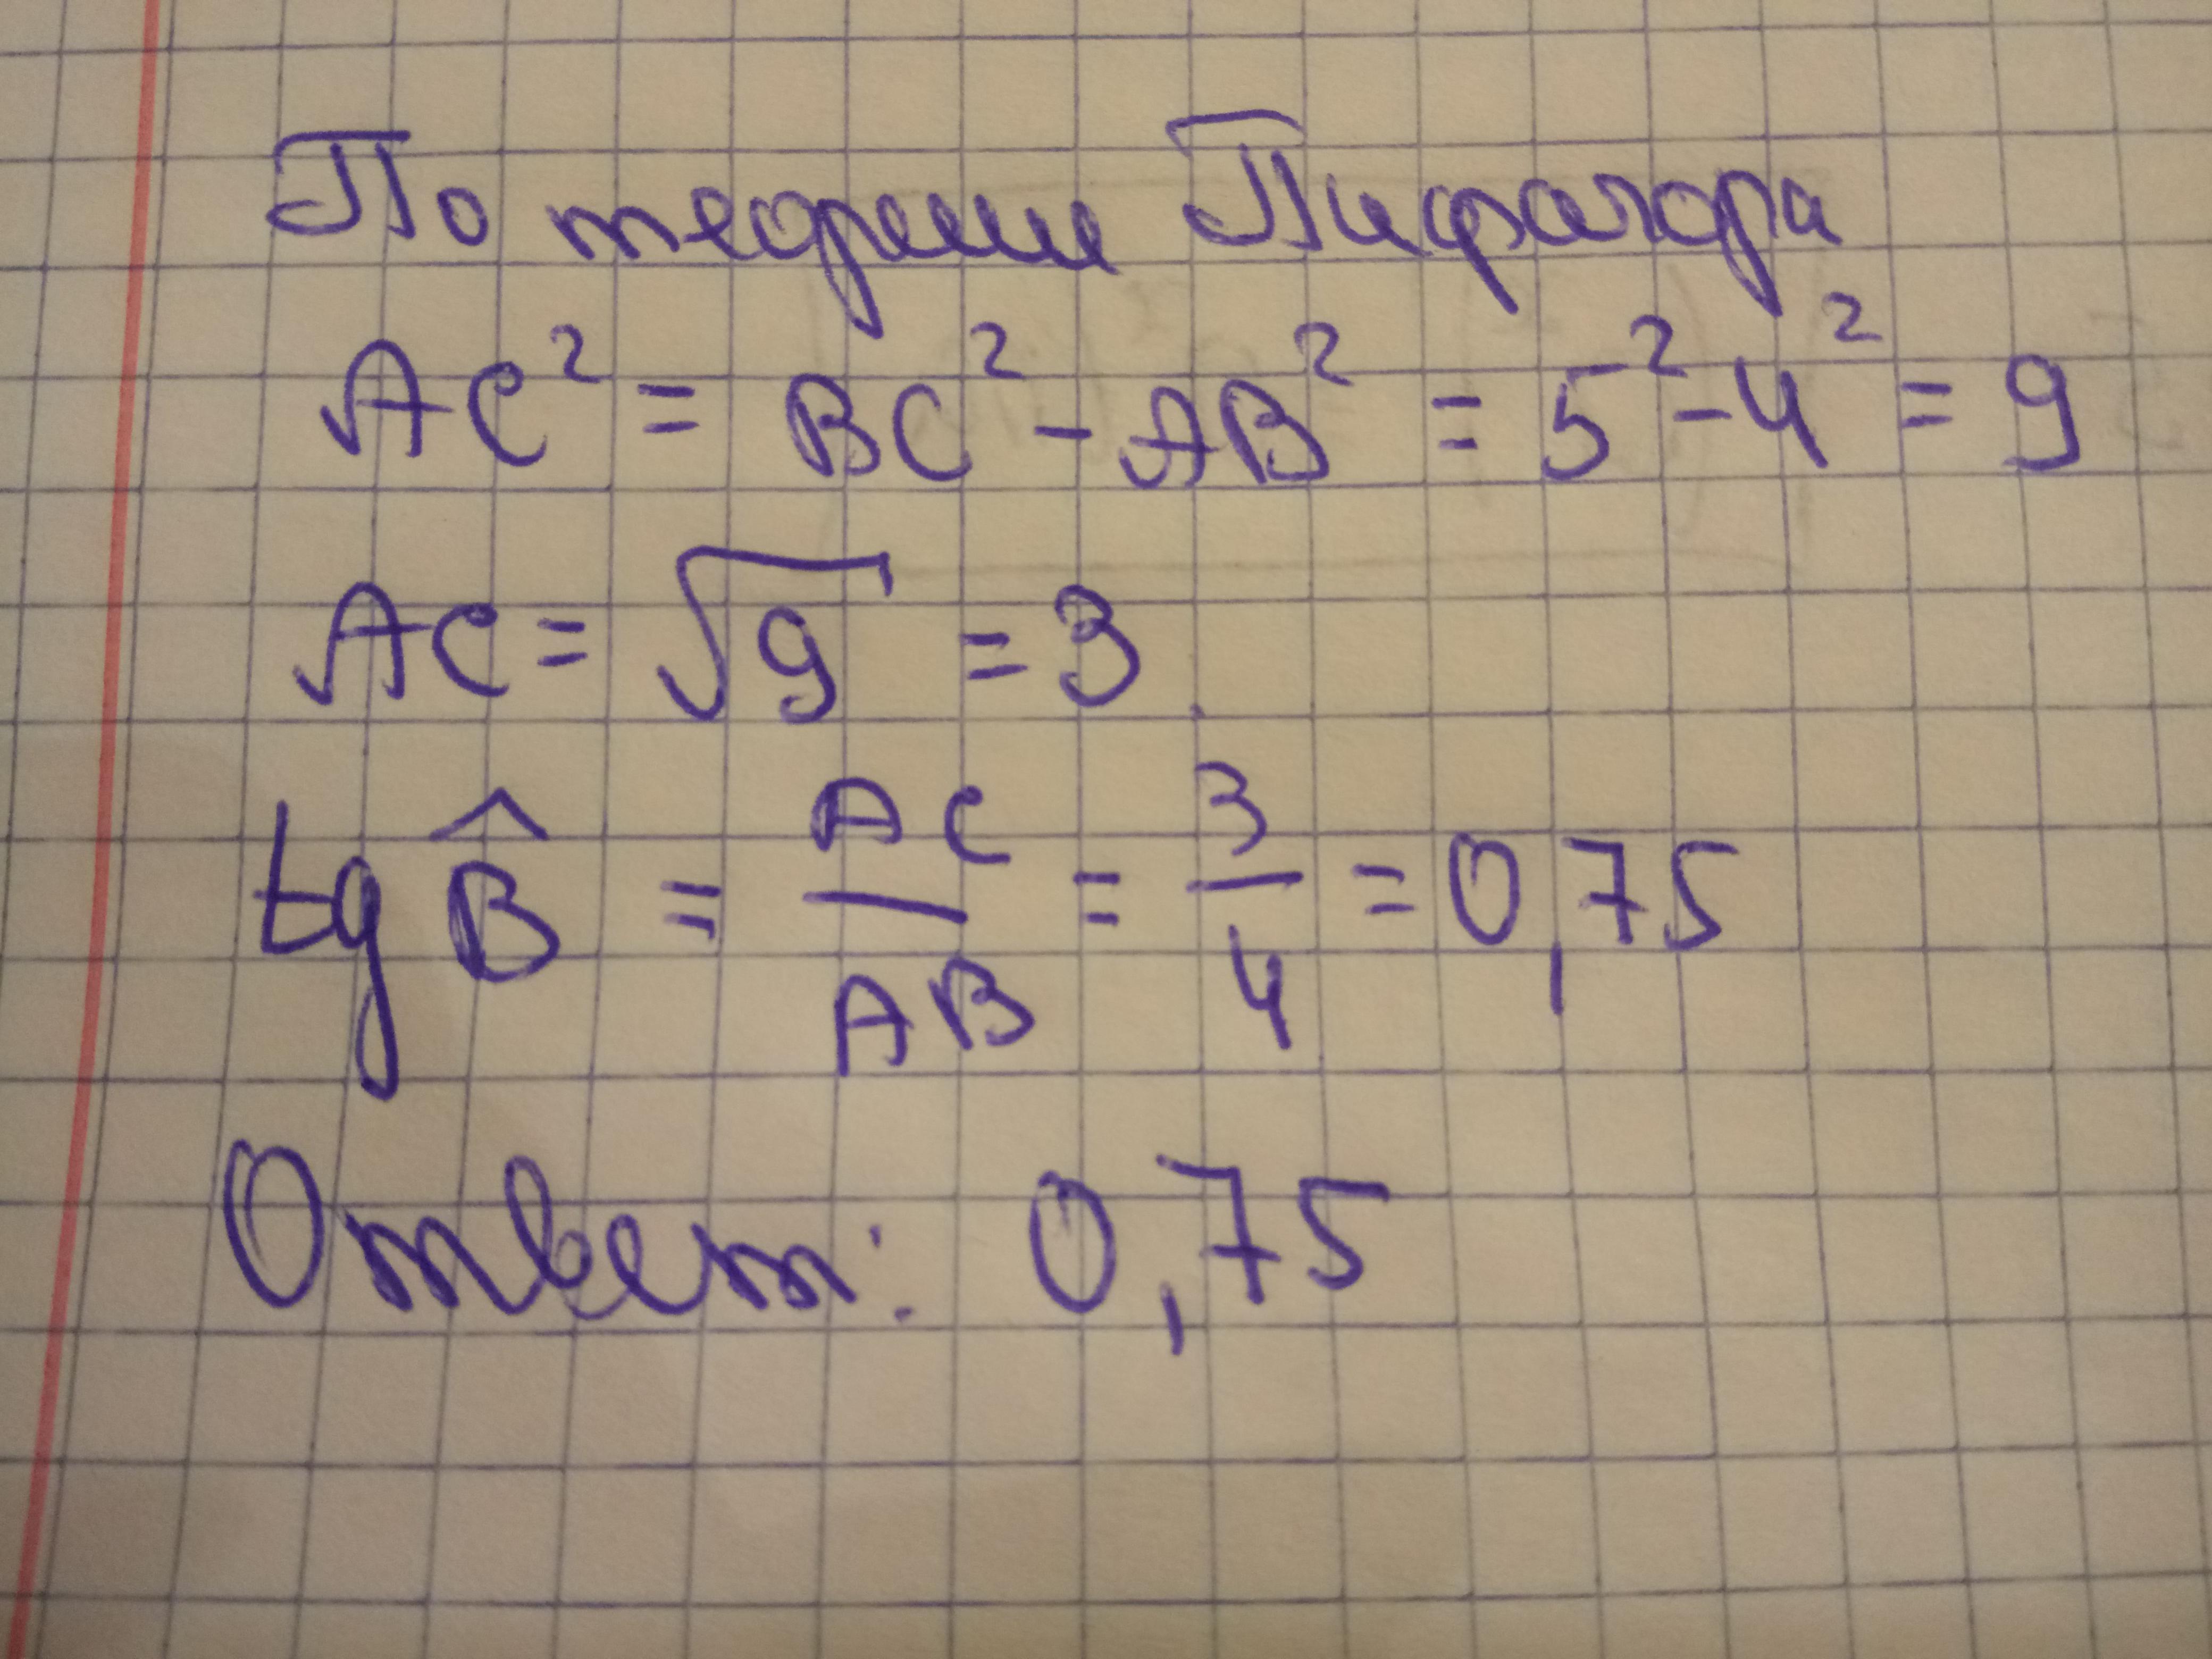 По теореме Пифагора
AC² = BC² - AB² = 5² - 4² = 9
AC = √9 = 3
tg B̂ = AC/AB = 3/4 = 0,75
Ответ: 0,75